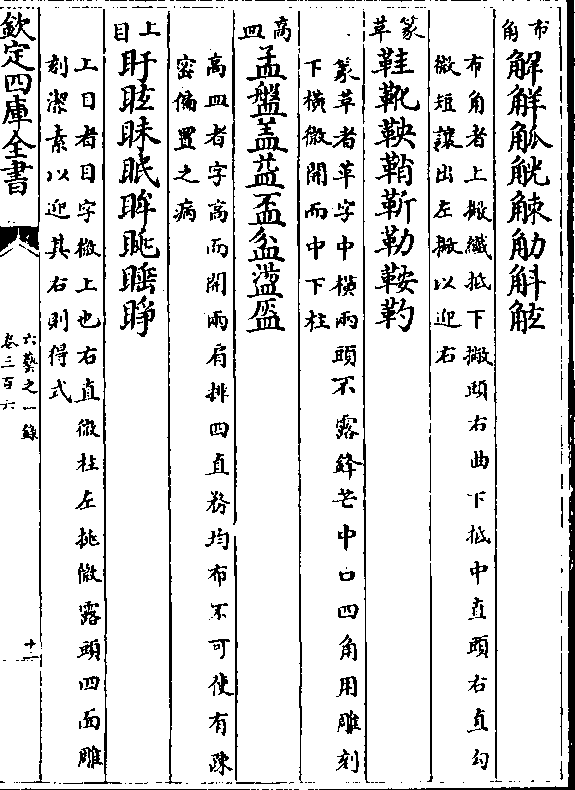 布角 解觧觚觥觫觔斛觝
布角者上撇纖抵下撇頭右曲下抵中直頭右直勾
微短讓出左撇以迎右
篆革 鞋靴鞅鞘靳勒鞍靮
篆革者革字中橫兩頭不露鋒芒中口四角用雕刻
下橫微開而中下柱
高皿 孟盤盖益盃盆盪盔
高皿者字高而開兩肩排四直務均布不可使有疎
密偏置之病
上目 盱眩眛眠眸眺睡睜
上目者目字微上也右直微柱左挑微露頭四面雕
刻潔素以迎其右則得式
欽定四庫全書
六藝之一錄
卷三百六
十二